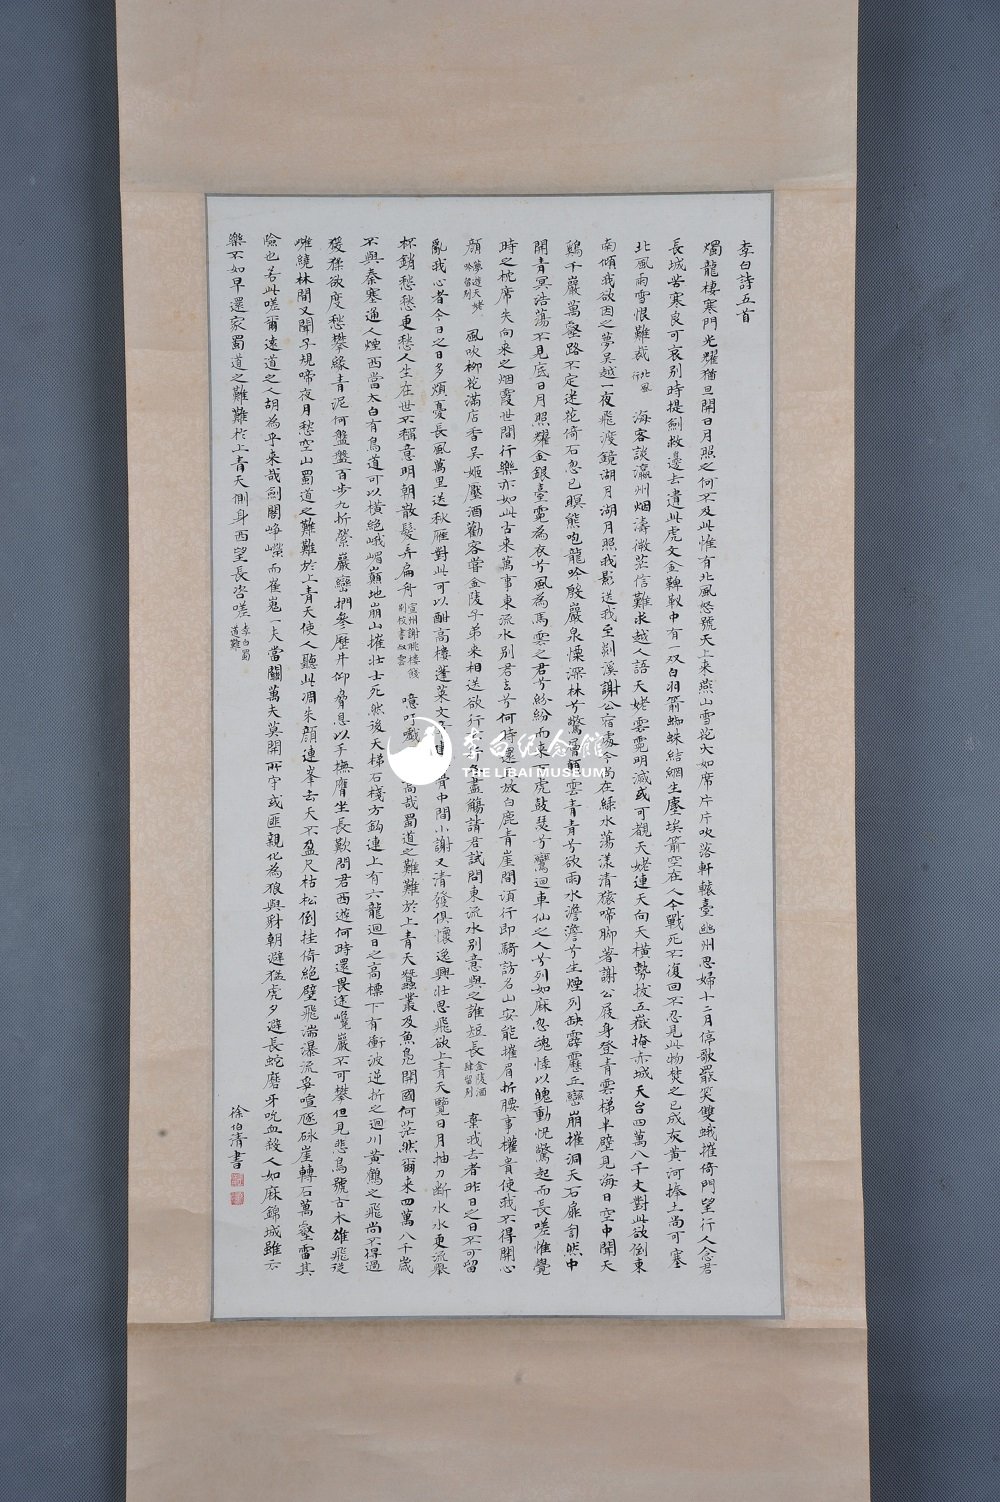 李白詩五首
燭龍棲寒門光耀猶旦開日月照之何不及此惟有北風怒號天上來燕山雪花大如席片片吹落軒轅臺幽州思婦十二月停歌罷笑雙蛾摧倚門望行人念君
長城苦寒良可哀別時提劍救邊去遺此虎文金鞞靫中有一双白羽箭蜘蛛結網生塵埃箭空在人今戰死不復回不忍見此物焚之已成灰黃河捧土尚可塞
北風雨雪恨難裁 北風行 海客談瀛州烟濤微茫信難求越人語天姥雲霓明滅或可覩天姥連天向天橫勢拔五嶽掩赤城天台四萬八千丈對此欲倒東
南傾我欲因之夢吳越一夜飛渡鏡湖月湖月照我影送我至剡溪謝公宿處今尚在綠水蕩漾清猿啼脚著謝公屐身登青雲梯半壁見海日空中聞天
鷄千巖萬壑路不定迷花倚石忽已暝熊咆龍吟殷巖泉慄深林兮驚層巔雲青青兮欲雨水澹澹兮生煙列缺霹靂丘巒崩摧洞天石扉訇然中
開青冥浩蕩不見底日月照耀金銀臺霓為衣兮風為馬雲之君兮紛紛而來下虎鼓瑟兮鸞迴車仙之人兮列如麻忽魂悸以魄動怳驚起而長嗟惟覺
時之枕席失向來之烟霞世間行樂亦如此古來萬事東流水別君去兮何時還且放白鹿青崖間須行即騎訪名山安能摧眉折腰事權貴使我不得開心
顏 夢遊天姥吟留別 風吹柳花滿店香吳姬壓酒勸客嘗金陵子弟來相送欲行不行各盡觴請君試問東流水別意與之誰短長 金陵酒肆留別 棄我去者昨日之日不可留
亂我心者今日之日多煩憂長風萬里送秋雁對此可以酣高樓蓬萊文章建安骨中間小謝又清發俱懷逸興壯思飛欲上青天覽日月抽刀斷水水更流舉
杯銷愁愁更愁人生在世不稱意明朝散髮弄扁舟 宣州謝朓樓餞別校書叔雲 噫吁嚱危乎高哉蜀道之難難於上青天蠶叢及魚鳧開國何茫然爾來四萬八千歲
不與秦塞通人煙西當太白有鳥道可以橫絕峨嵋巔地崩山摧壯士死然後天梯石棧方鈎連上有六龍迴日之高標下有衝波逆折之迴川黃鶴之飛尚不得過
猨猱欲度愁攀緣青泥何盤盤百步九折縈巖巒捫參歷井仰脅息以手撫膺坐長歎問君西遊何時還畏途巉巖不可攀但見悲鳥號古木雄飛從
雌繞林間又聞子規啼夜月愁空山蜀道之難難於上青天使人聽此凋朱顏連峯去天不盈尺枯松倒挂倚絕壁飛湍瀑流爭喧豗砯崖轉石萬壑雷其
險也若此嗟爾遠道之人胡為乎來哉劍閣崢嶸而崔嵬一夫當關萬夫莫開所守或匪親化為狼與豺朝避猛虎夕避長蛇磨牙吮血殺人如麻錦城雖云
樂不如早還家蜀道之難難於上青天側身西望長咨嗟 李白蜀道難
徐伯清書
李白纪念馆
THE LIBAI MUSEUM